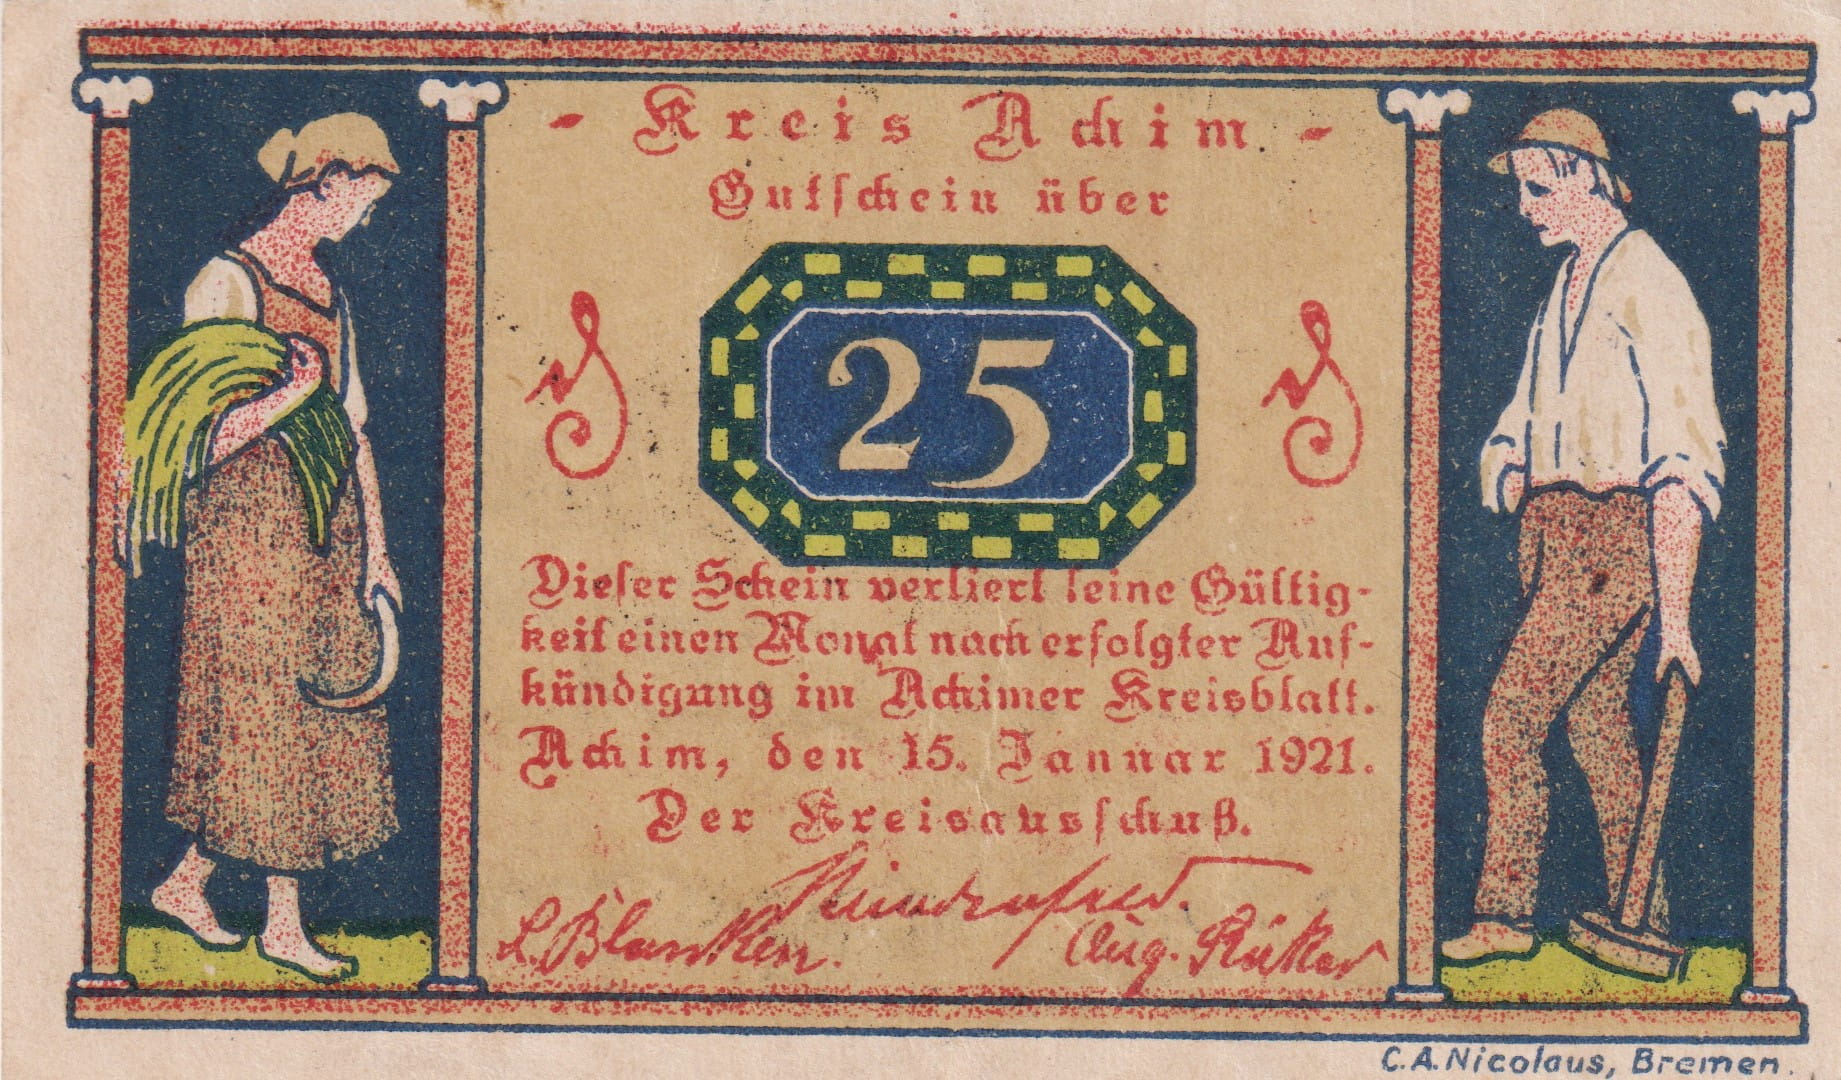 - Kreis Achim -
Gutschein über
25
Dieser Schein verliert seine Gültig-
keit einen Monat nach erfolgter Auf-
kündigung im Achimer Kreisblatt.
Achim, den 15. Januar 1921.
Der Kreisausschuß.
L. Blanken.
Aug. Rüker
C.A. Nicolaus, Bremen.